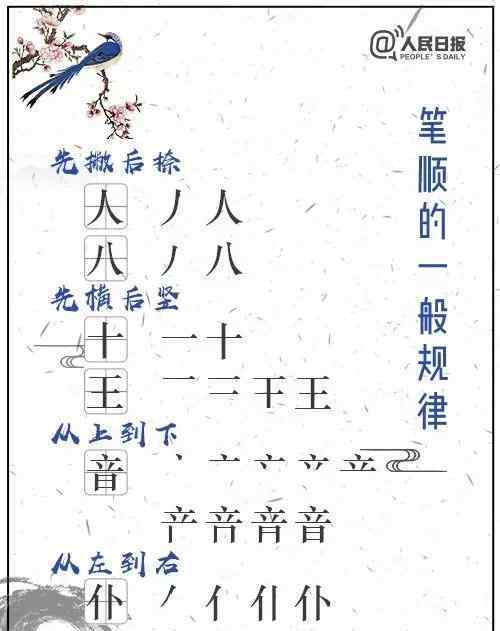 @人民日报
PEOPLE'S DAILY
笔顺的一般规律
先撇后捺
人 丿 人
八 丿 八
先横后竖
十 一 十
王 一 二 干 王
从上到下
音 丶 亠 立
音
从左到右
仆 丿 亻 仆